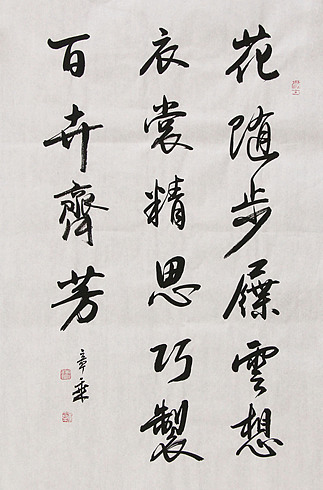 花随步屧雲想
衣裳精思巧製
百卉齊芳
章乘